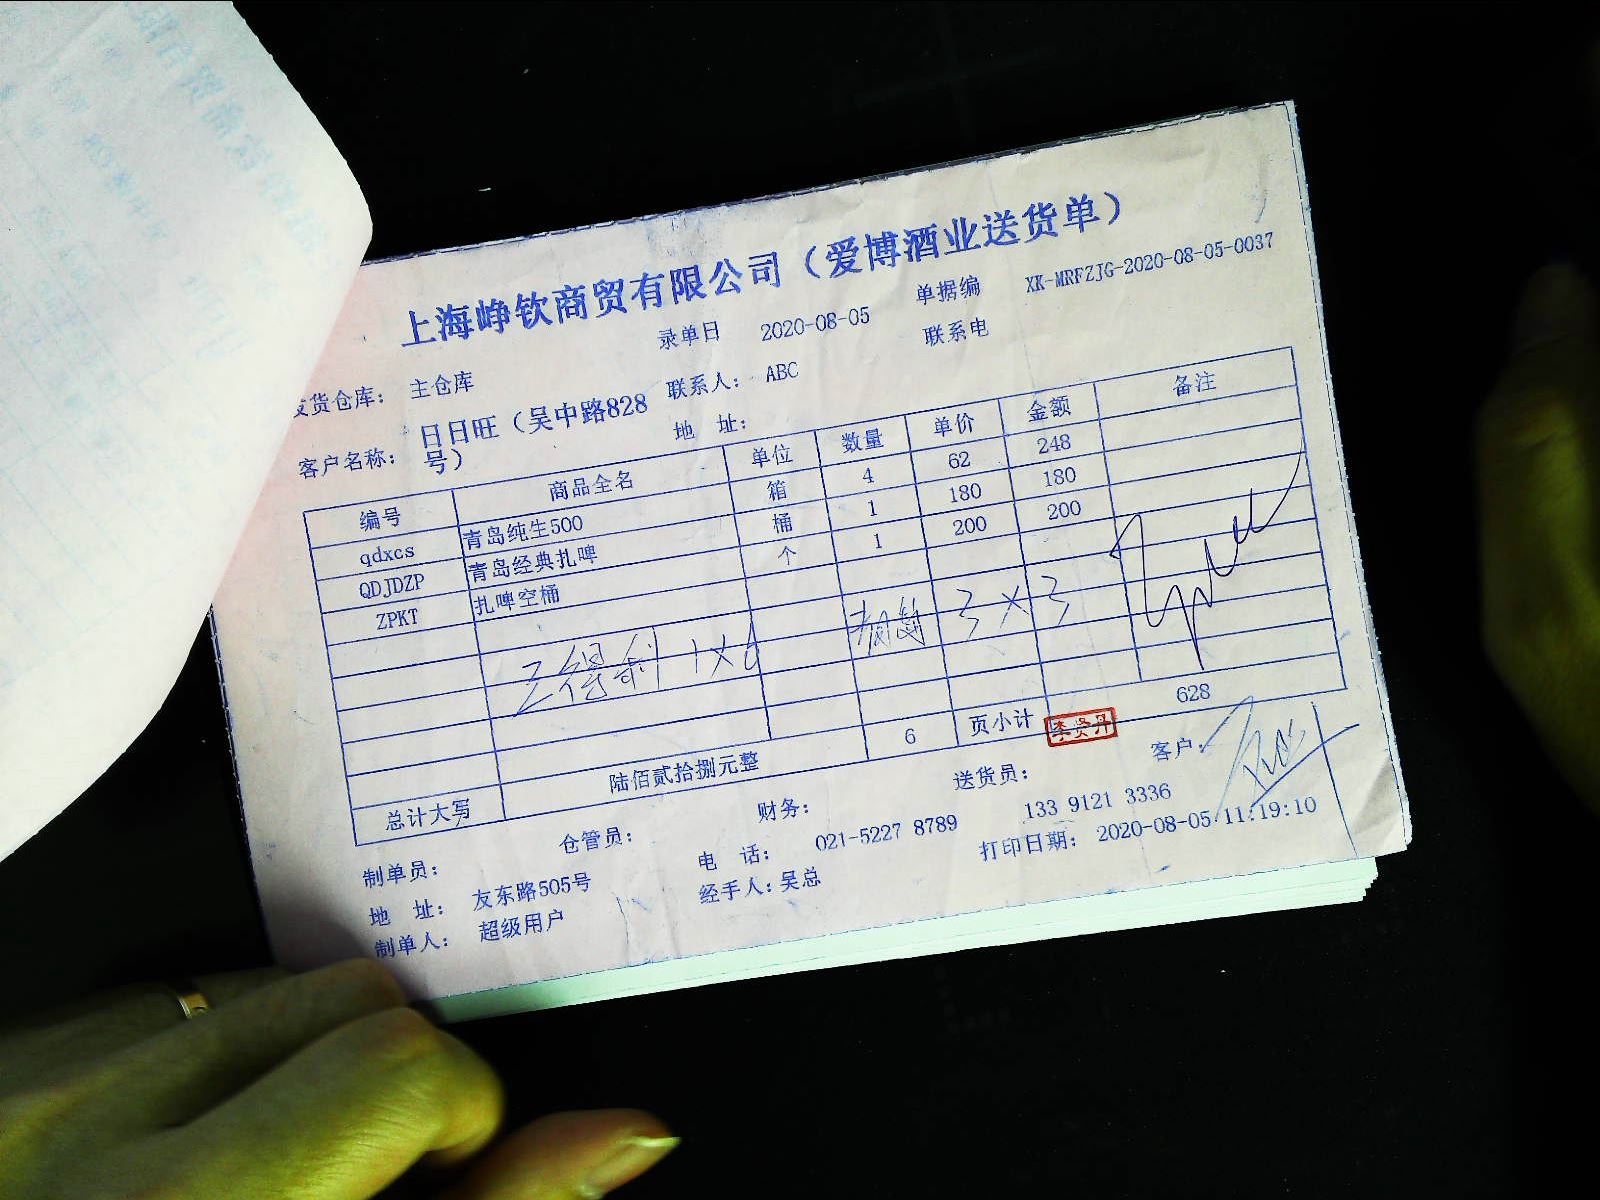 上海峥钦商贸有限公司（爱博酒业送货单）
录单日 2020-08-05 单据编 XK-MRFZJG-2020-08-05-0037
发货仓库： 主仓库 联系人： ABC 联系电
客户名称： 日日旺（吴中路828号） 地 址：
编号 商品全名 单位 数量 单价 金额 备注
qdxcs 青岛纯生500 箱 4 62 248
QDJDZP 青岛经典扎啤 桶 1 180 180
ZPKT 扎啤空桶 个 1 200 200
三得利 1×6 3×3
6 页小计 628
李贤丹
总计大写 陆佰贰拾捌元整
制单员： 仓管员： 财务： 送货员： 客户：
地 址： 友东路505号 电 话： 021-5227 8789 133 9121 3336
制单人： 超级用户 经手人：吴总 打印日期： 2020-08-05 11:19:10